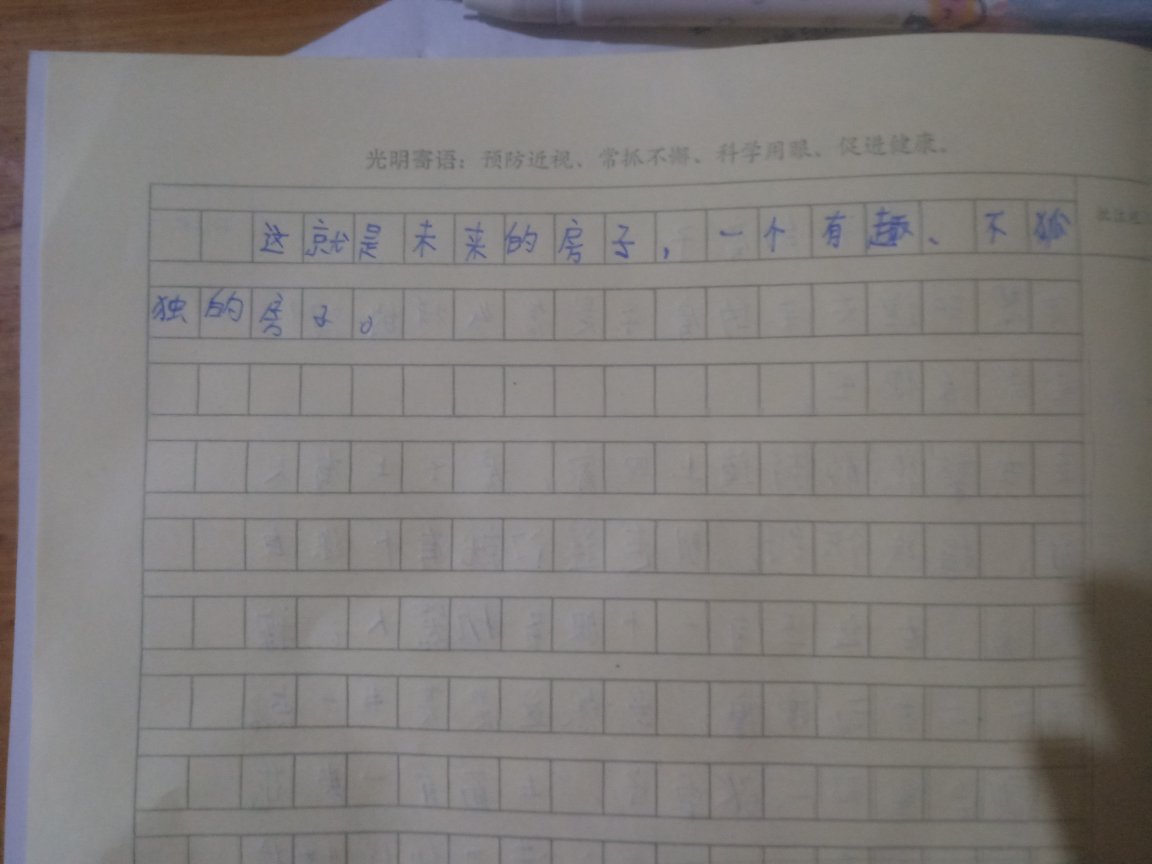 光明寄语：预防近视、常抓不懈、科学用眼、促进健康。
这就是未来的房子，一个有趣、不孤
独的房子。